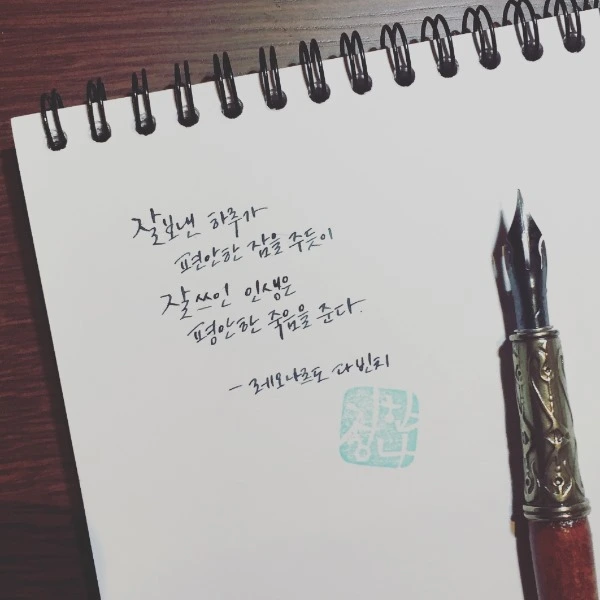 잘 보낸 하루가
편안한 잠을 주듯이
잘 쓰인 인생은
평안한 죽음을 준다.
- 레오나르도 다 빈치